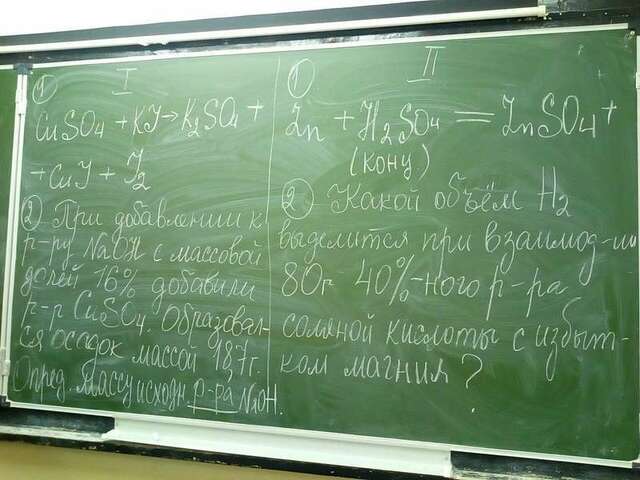 I
1
CuSO4 + KJ → K2SO4 +
+ CuJ + J2
2 При добавлении к
р-ру NaOH с массовой
долей 16% добавили
р-р CuSO4. Образовал-
ся осадок массой 18,7г.
Опред. массу исходн. р-ра NaOH.
II
1
Zn + H2SO4 = ZnSO4 +
(конц)
2 Какой объём H2
выделится при взаимод-ии
80г 40%-ного р-ра
соляной кислоты с избыт-
ком магния?